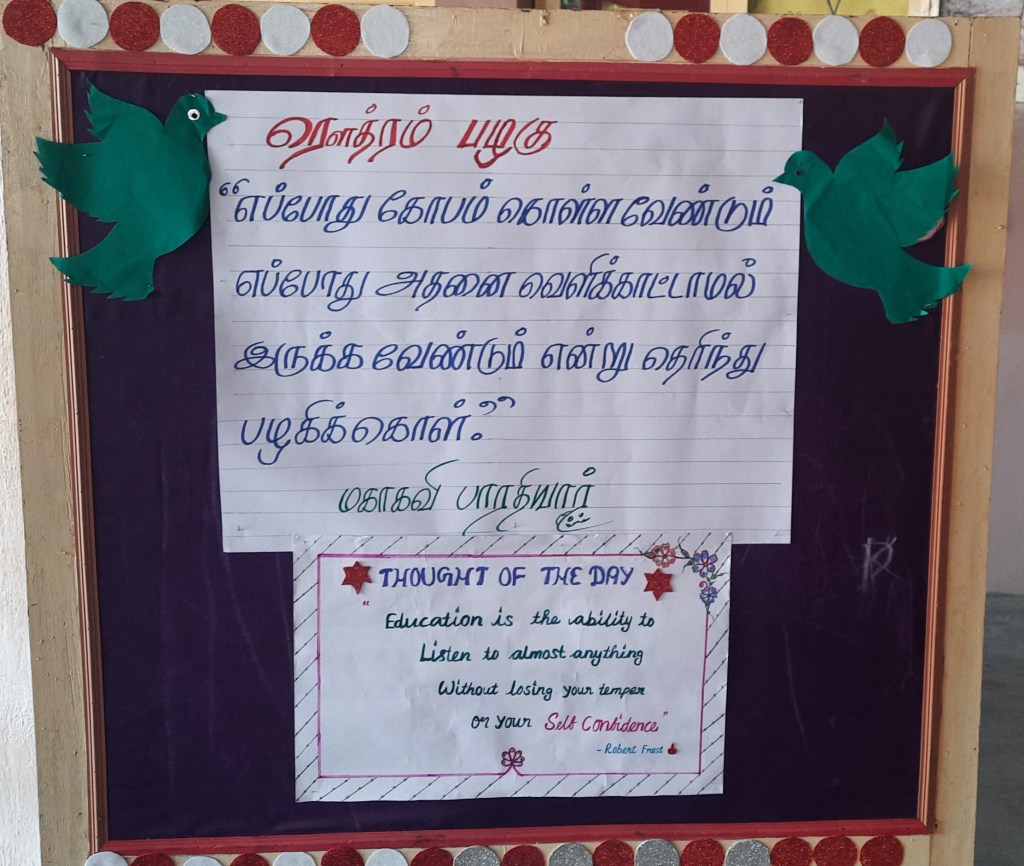 ரௌத்ரம் பழகு
“எப்போது கோபம் கொள்ள வேண்டும்
எப்போது அதனை வெளிக்காட்டாமல்
இருக்க வேண்டும் என்று தெரிந்து
பழகிக்கொள்.”
மகாகவி பாரதியார்
THOUGHT OF THE DAY
"Education is the ability to
Listen to almost anything
Without losing your temper
or your Self Confidence"
- Robert Frost